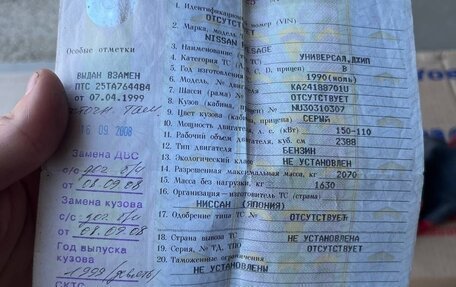 Особые отметки
ВЫДАН ВЗАМЕН
ПТС 25ТА764484
от 07.04.1999
16 09 2008
Замена ДВС
с/с дог б/н
от 08.09.08
Замена кузова
с/с дог б/н
от 08.09.08
Год выпуска
кузова
1999
СКТС
1. Идентификационный
номер (VIN)
ОТСУТСТ
2. Марка, модель
NISSAN
ESSAGE
3. Наименование
УНИВЕРСАЛ, ДЖИП
4. Категория ТС (А, В, С, D, прицеп)
B
5. Год изготовления
1990(июль)
6. Модель, № двигателя
KA24188701U
7. Шасси (рама) №
ОТСУТСТВУЕТ
8. Кузов (кабина, прицеп) №
NU30310307
9. Цвет кузова (кабины, прицепа)
СЕРЫЙ
10. Мощность двигателя, л. с. (кВт)
150-110
11. Рабочий объем двигателя, куб. см
2388
12. Тип двигателя
БЕНЗИН
13. Экологический класс
НЕ УСТАНОВЛЕН
14. Разрешенная максимальная масса, кг
2070
15. Масса без нагрузки, кг
1630
16. Организация—изготовитель ТС (страна)
НИССАН (ЯПОНИЯ)
17. Одобрение типа ТС №
ОТСУТСТВУЕТ
18. Страна вывоза ТС
НЕ УСТАНОВЛЕНА
19. Серия, № ТД, ТПО
ОТСУТСТВУЕТ
20. Таможенные ограничения
НЕ УСТАНОВЛЕНЫ